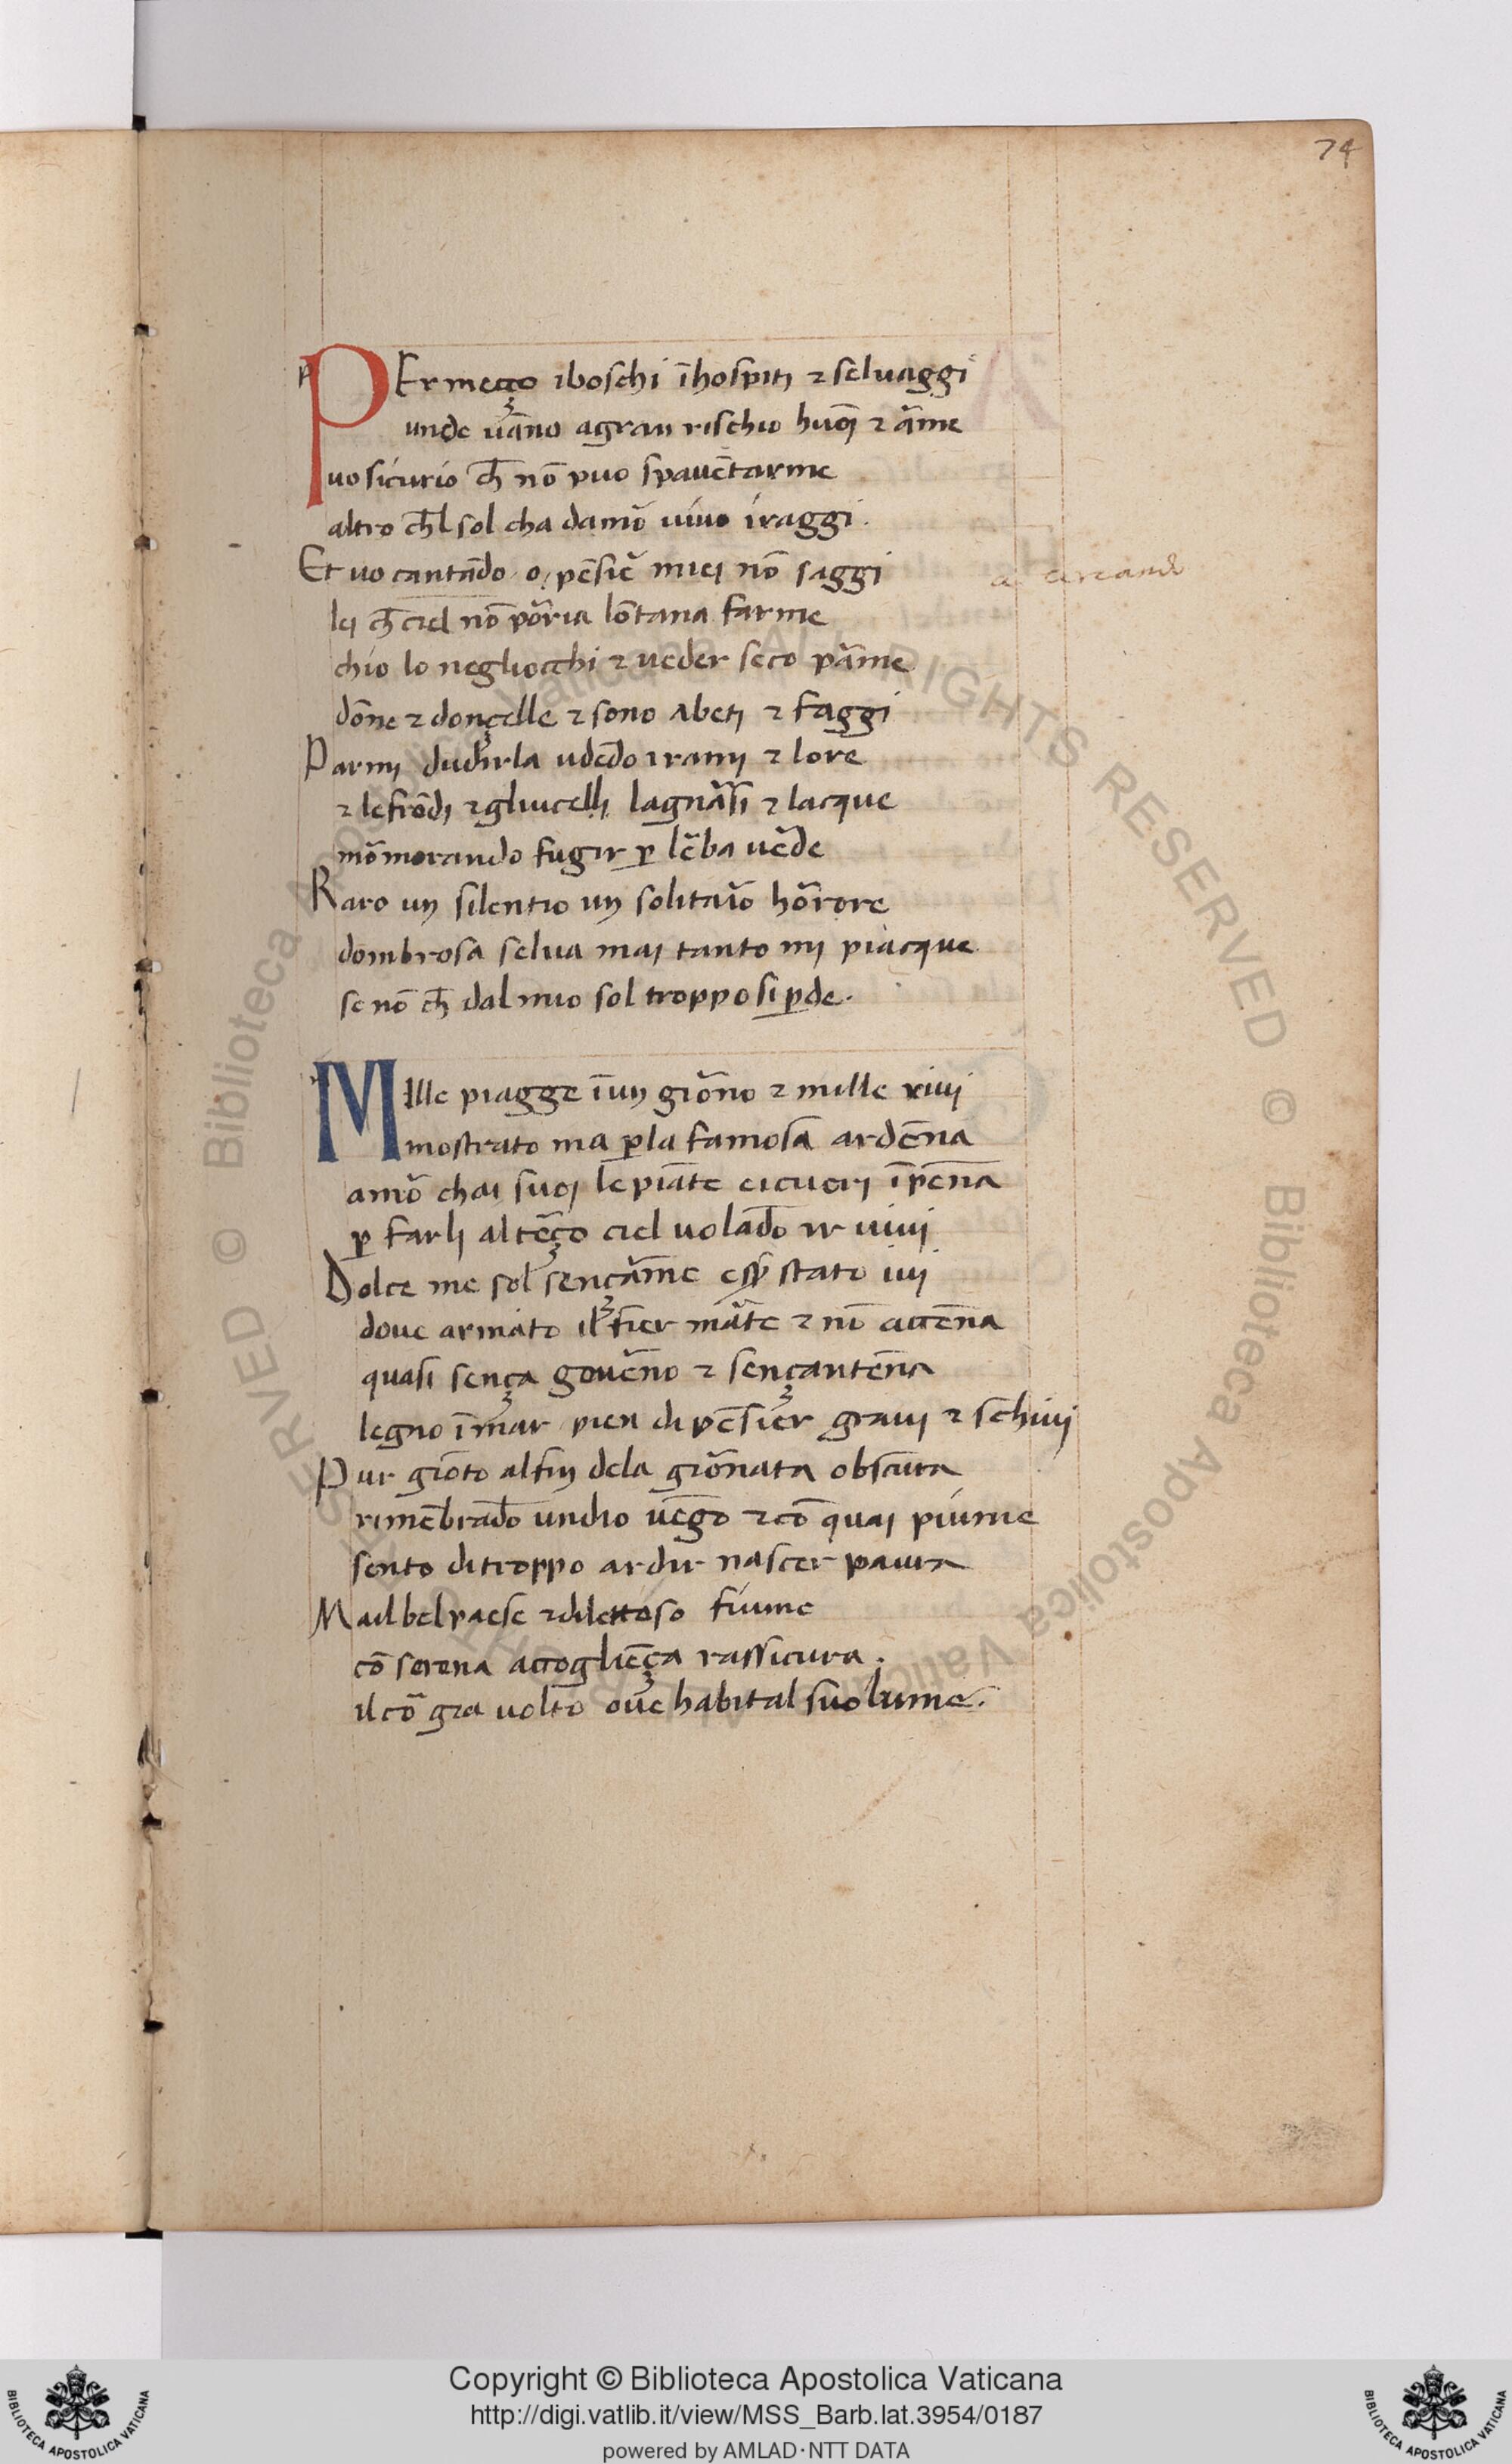 74
PErmeço iboschi ĩhospitj ⁊ seluaggi
unde uãno agran rischio huoj ⁊ ãme
uo sicurio ch̃ nõ puo spauẽtarme
altro ch̃l sol cha damõ uiuo iraggi.
Et uo cantãdo o pẽsiẽ miej nõ saggi
lej ch̃ ciel nõ põria lõtana farme
chio lo negliocchi ⁊ ueder seco pãme
dõne ⁊ donçelle ⁊ sono abetj ⁊ faggi
Parmj dudirla udẽdo iramj ⁊ lore
⁊ le frõdj ⁊ gliucellj lagnãsi ⁊ lacque
mõmorando fugir ꝑ lẽba uẽde
Raro un silentio un solitaĩo hõrore
dombrosa selua maj tanto mj piacque
se nõ ch̃ dal mio sol troppo si ꝑde.
Mille piagge ĩun giõno ⁊ mille riuj
mostrato ma ꝑla famosa ardẽna
amõ chai suoj le piãte eicuorj ĩpẽna
ꝑ farlj al tẽço ciel uolãdo ir uiuj
Dolce me sol sençãme esser stato iuj
doue armato il fier mãte ⁊ nõ accẽna
quasi sença gouẽno ⁊ sençantẽna
legno ĩ mar pien di pẽsier grauj ⁊ schiuj
Pur giõto alfin dela giõnata obscura
rimẽbrãdo undio uẽgo ⁊ cõ quaj piume
sento ditroppo ardir nascer paura
Mail bel paese ⁊ dilettoso fiume
cõ serena accogliẽça rassicura.
il cõ gia uolto oue habital suo lume.
Copyright © Biblioteca Apostolica Vaticana
http://digi.vatlib.it/view/MSS_Barb.lat.3954/0187
powered by AMLAD·NTT DATA
BIBLIOTECA APOSTOLICA VATICANA
BIBLIOTECA APOSTOLICA VATICANA